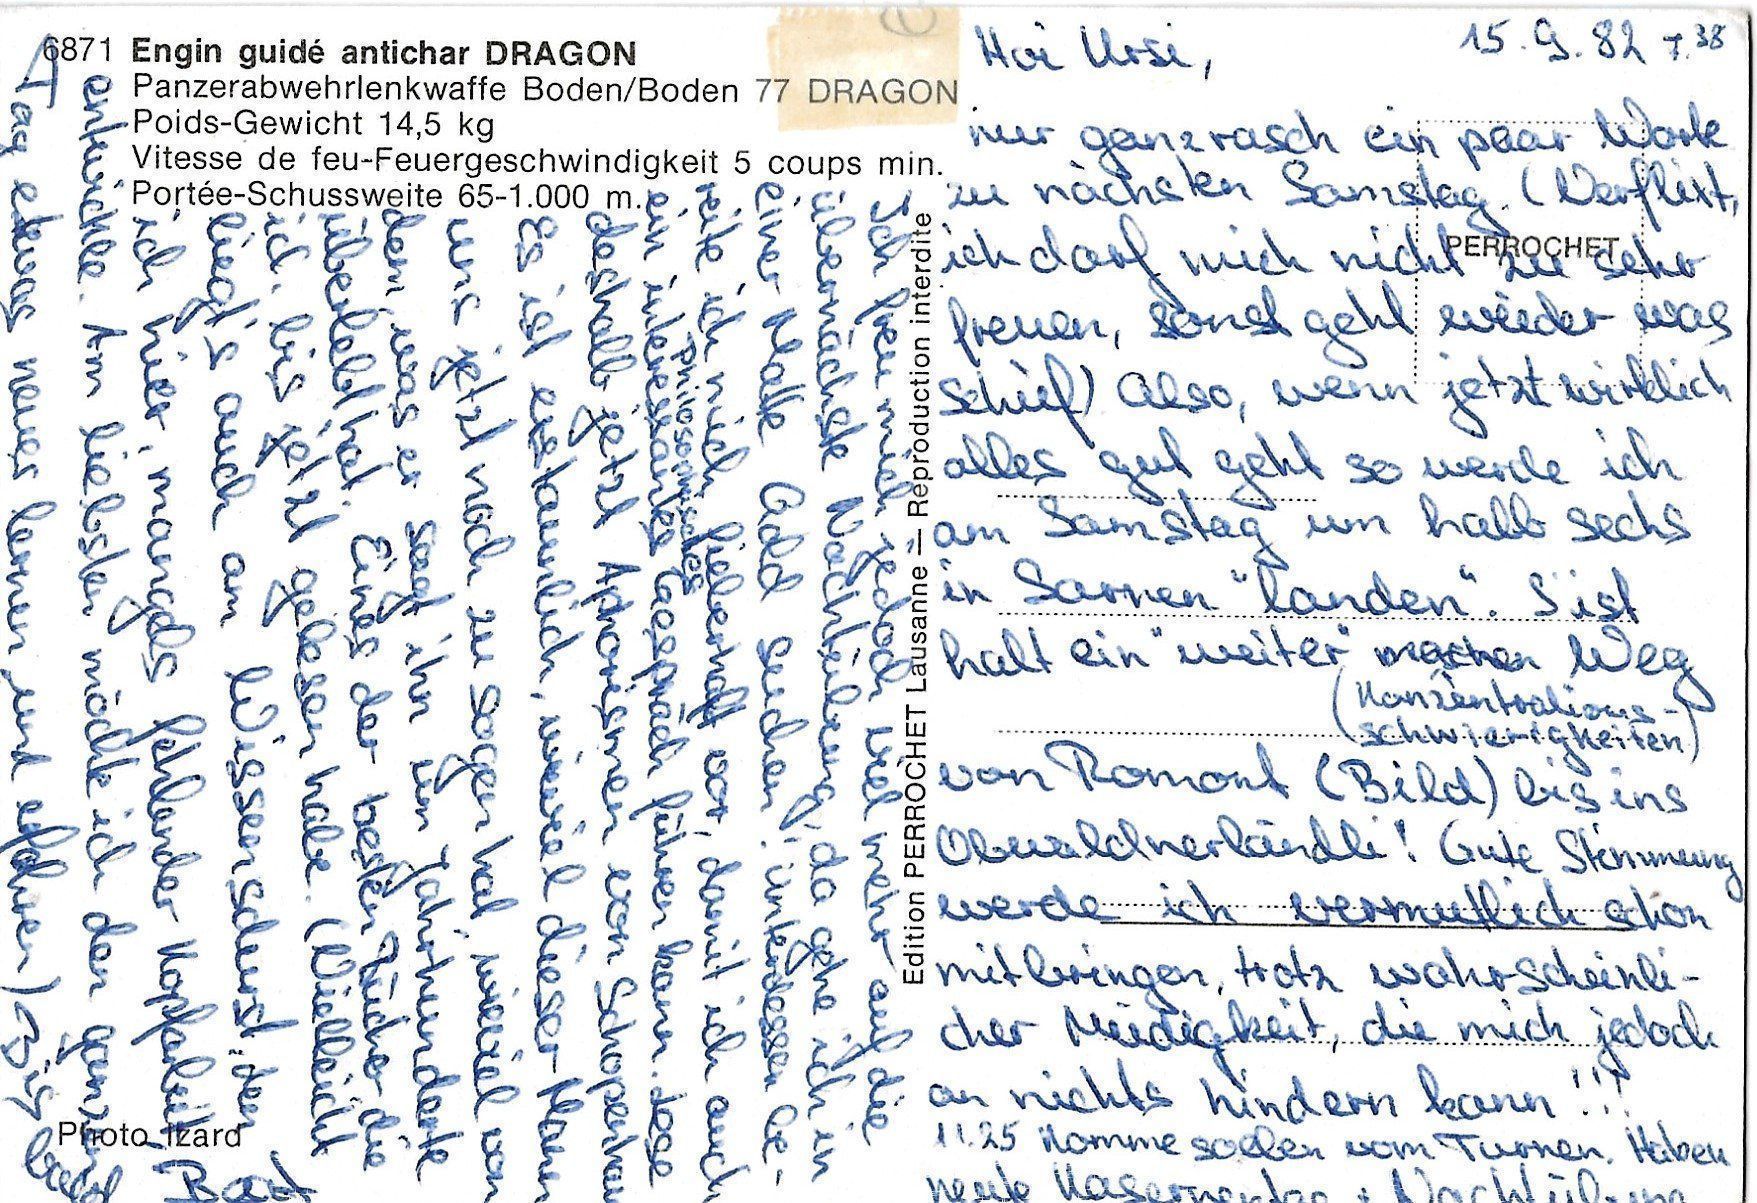 6871 Engin guidé antichar DRAGON
Panzerabwehrlenkwaffe Boden/Boden 77 DRAGON
Poids-Gewicht 14,5 kg
Vitesse de feu-Feuergeschwindigkeit 5 coups min.
Portée-Schussweite 65-1.000 m.
Edition PERROCHET Lausanne — Reproduction interdite
PERROCHET
Photo Izard
15.9.82 7.38
Hoi Ursi,
nur ganz rasch ein paar Worte
zu nächsten Samstag. (Verflixt,
ich darf mich nicht zu sehr
freuen, sonst geht wieder was
schief) Also, wenn jetzt wirklich
alles gut geht so werde ich
am Samstag um halb sechs
in Sarnen "landen". S'ist
halt ein "weiter" Weg
(Konzentrations-
schwierigkeiten)
von Romont (Bild) bis ins
Obwaldnerländli! Gute Stimmung
werde ich vermutlich schon
mitbringen, trotz wahrscheinli-
cher Müdigkeit, die mich jedoch
an nichts hindern kann!!!
11.25 Komme soeben vom Turnen. Haben
heute Kasernentag + Nachtübung
Ich freu mich jedoch viel mehr auf die
übernächste Nachtübung, da gehe ich in
einer Matte Gold suchen, unterdessen be-
reite ich mich fieberhaft vor, damit ich auch
ein interessantes philosophisches Gespräch führen kann. Lese
deshalb jetzt Aphorismen von Schopenhau
Es ist erstaunlich, wieviel dieser Mann
uns jetzt noch zu sagen hat, wieviel von
dem, was er sagt ihn um Jahrhunderte
überlebt hat. Eines der besten Bücher die
ich bis jetzt gelesen habe. (Vielleicht
liegt's auch am Wissensdurst, den
ich hier, mangels fehlender Kopfarbeit
entwickle. Am liebsten möchte ich den ganzen
Tag etwas neues lernen und erfahren) Bis bald
Beat